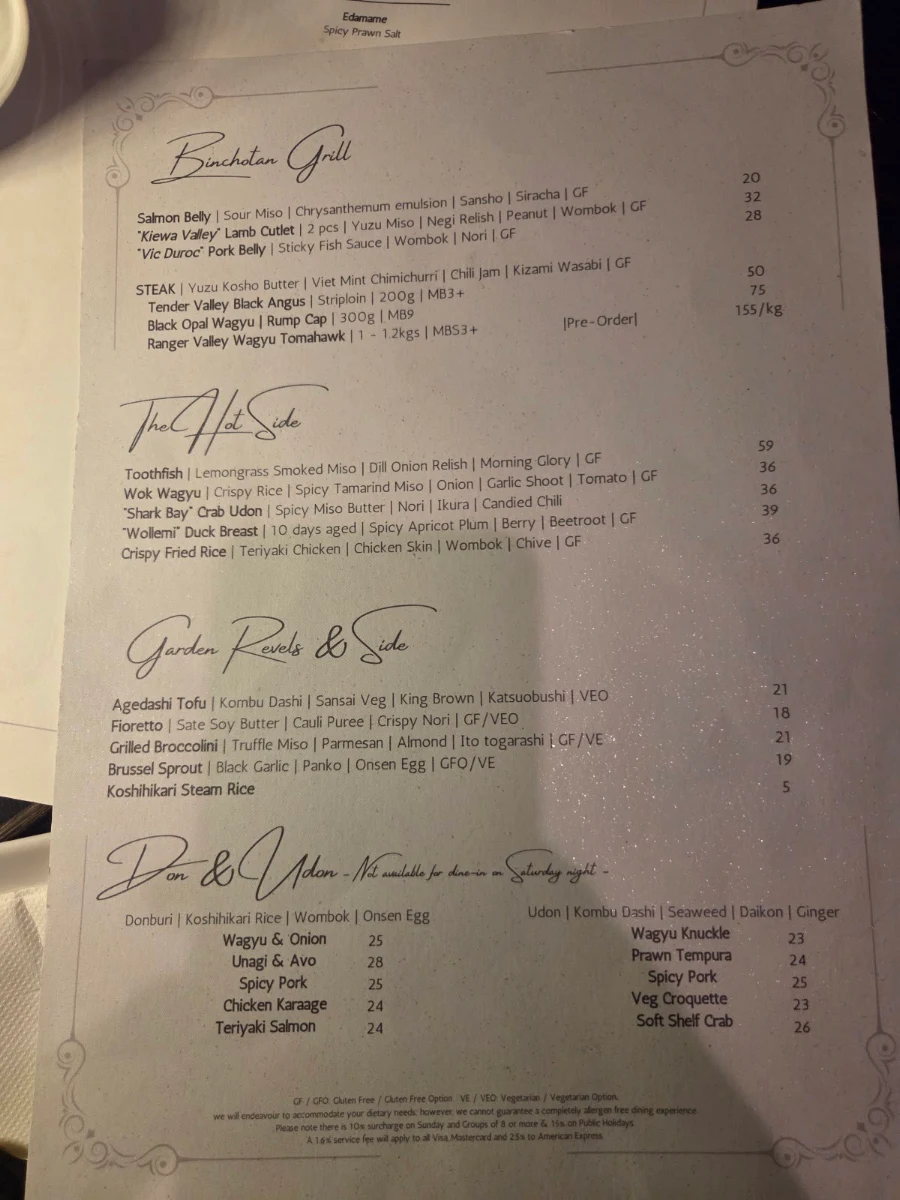 Edamame
Spicy Prawn Salt
Binchotan Grill
Salmon Belly | Sour Miso | Chrysanthemum emulsion | Sansho | Siracha | GF 20
"Kiewa Valley" Lamb Cutlet | 2 pcs | Yuzu Miso | Negi Relish | Peanut | Wombok | GF 32
"Vic Duroc" Pork Belly | Sticky Fish Sauce | Wombok | Nori | GF 28
STEAK | Yuzu Kosho Butter | Viet Mint Chimichurri | Chili Jam | Kizami Wasabi | GF
Tender Valley Black Angus | Striploin | 200g | MB3+ 50
Black Opal Wagyu | Rump Cap | 300g | MB9 75
Ranger Valley Wagyu Tomahawk | 1 - 1.2kgs | MBS3+ |Pre-Order| 155/kg
The Hot Side
Toothfish | Lemongrass Smoked Miso | Dill Onion Relish | Morning Glory | GF 59
Wok Wagyu | Crispy Rice | Spicy Tamarind Miso | Onion | Garlic Shoot | Tomato | GF 36
"Shark Bay" Crab Udon | Spicy Miso Butter | Nori | Ikura | Candied Chili 36
"Wollemi" Duck Breast | 10 days aged | Spicy Apricot Plum | Berry | Beetroot | GF 39
Crispy Fried Rice | Teriyaki Chicken | Chicken Skin | Wombok | Chive | GF 36
Garden Revels & Side
Agedashi Tofu | Kombu Dashi | Sansai Veg | King Brown | Katsuobushi | VEO 21
Fioretto | Sate Soy Butter | Cauli Puree | Crispy Nori | GF/VEO 18
Grilled Broccolini | Truffle Miso | Parmesan | Almond | Ito togarashi | GF/VE 21
Brussel Sprout | Black Garlic | Panko | Onsen Egg | GFO/VE 19
Koshihikari Steam Rice 5
Don & Udon - Not available for dine-in on Saturday night -
Donburi | Koshihikari Rice | Wombok | Onsen Egg
Wagyu & Onion 25
Unagi & Avo 28
Spicy Pork 25
Chicken Karaage 24
Teriyaki Salmon 24
Udon | Kombu Dashi | Seaweed | Daikon | Ginger
Wagyu Knuckle 23
Prawn Tempura 24
Spicy Pork 25
Veg Croquette 23
Soft Shelf Crab 26
GF / GFO: Gluten Free / Gluten Free Option VE / VEO: Vegetarian / Vegetarian Option.
we will endeavour to accommodate your dietary needs; however, we cannot guarantee a completely allergen free dining experience
Please note there is 10% surcharge on Sunday and Groups of 8 or more & 15% on Public Holidays
A 1.6% service fee will apply to all Visa, Mastercard and 2.5% to American Express